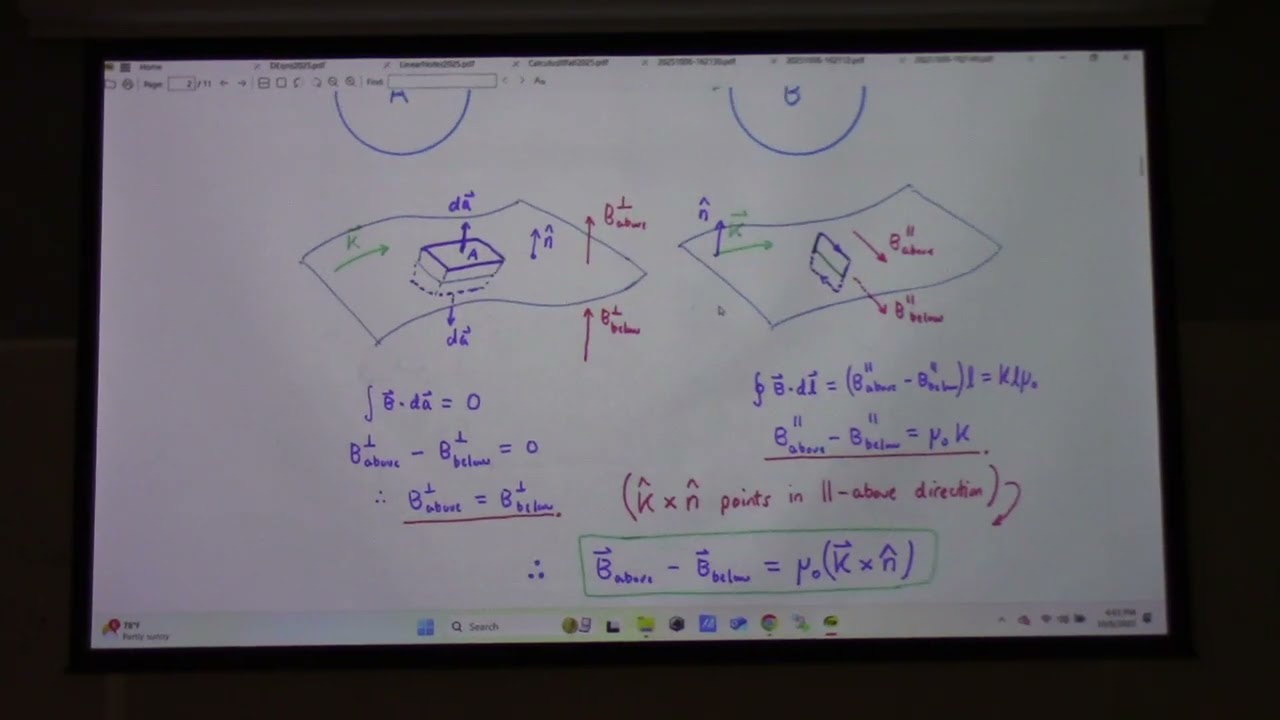 Home
DEqns2025.pdf
LinearNotes2025.pdf
CalculusIIIfall2025.pdf
Page: 2 / 11
Find:
A
B
da⃗
K⃗
A
n̂
B⊥above
da⃗
B⊥below
n̂
K⃗
B∥above
B∥below
∫ B⃗ · da⃗ = 0
B⊥above − B⊥below = 0
∴ B⊥above = B⊥below.
∮ B⃗ · dl⃗ = (B∥above − B∥below) l = K l μ₀
B∥above − B∥below = μ₀ K.
(K̂ × n̂ points in ∥-above direction)
∴ B⃗above − B⃗below = μ₀(K⃗ × n̂)
78°F
Partly sunny
Search